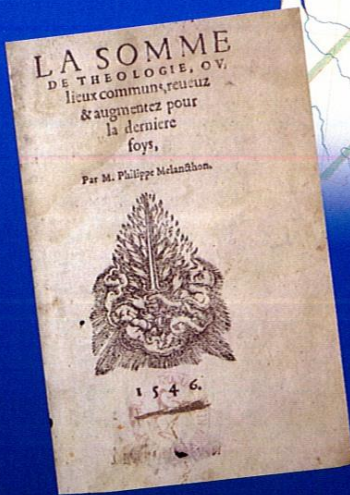 LA SOMME
DE THEOLOGIE, OV,
lieux communs, reueuz
& augmentez pour
la derniere
foys,
Par M. Philippe Melancthon.
1546.